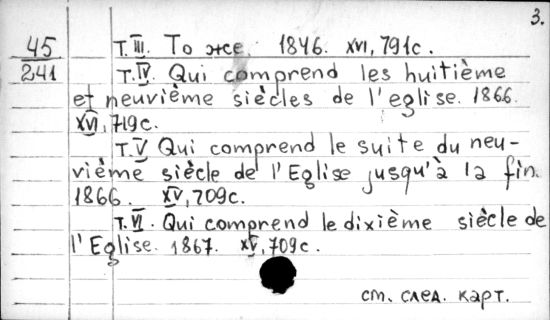 3.
45
241
Т. III. То же. 1846. XVI, 791с.
Т. IV. Qui comprend les huitième
et neuvième siècles de l'eglise. 1866.
XVI, 719с.
Т. V Qui comprend le suite du neu-
vième siècle de l'Eglise jusqu'à la fin.
1866. XV, 709с.
Т. VI. Qui comprend le dixième siècle de
l'Eglise. 1867. XV, 709с.
см. след. карт.